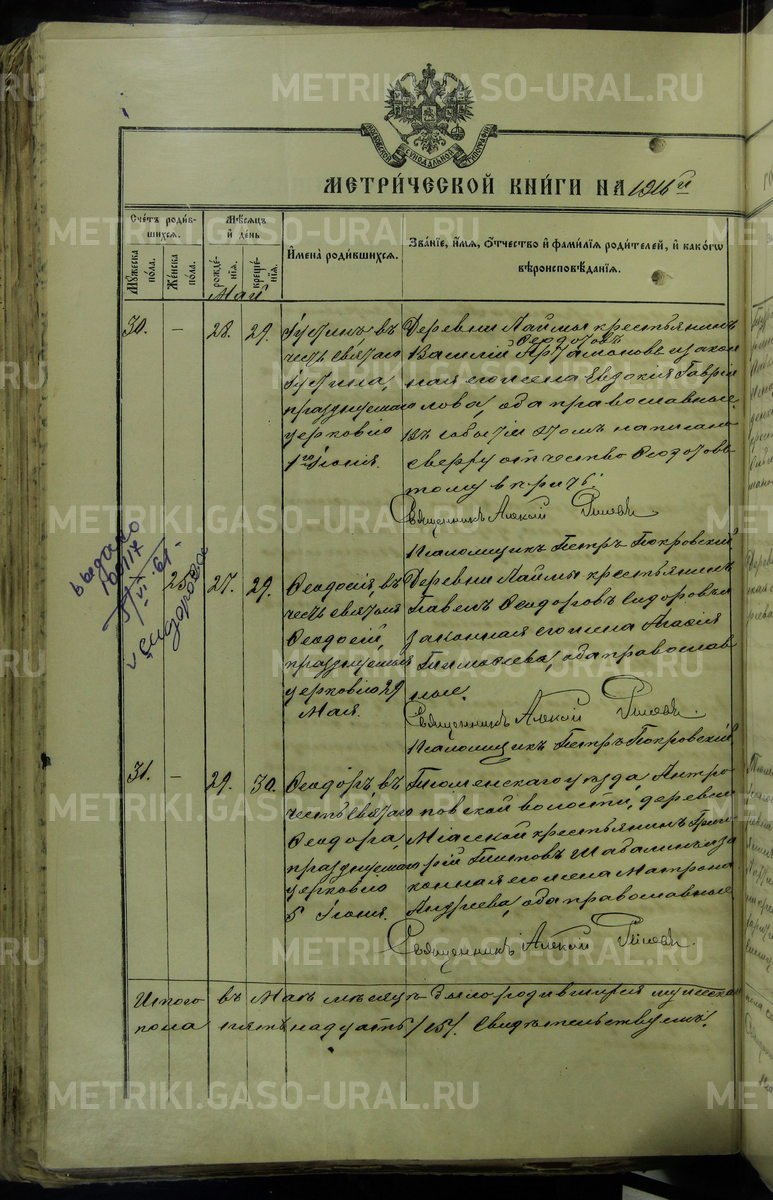 МЕТРИ́ЧЕСКОЙ КНИ́ГИ НА 1916 й
Сче́тъ роди́в-
шихся.
Му́жеска
по́ла.
Же́нска
по́ла.
Мѣ́сяцъ
и҆ де́нь
рожде́-
нія.
креще́-
нія.
И҆мена̀ роди́вшихся.
Зва́ніе, и҆́мя, ѻ҆́тчество и҆ фами́лія роди́телей, и҆ како́гѡ
вѣроисповѣ́данія.
Май
30. – 28. 29.
Іустинъ, въ
честь святаго
Іустина,
празднуемаго
церковію
1го Іюня.
Деревни Лаймы крестьянинъ
Ѳеодотовъ
Василій Артамоновъ и закон
ная его жена Евдокія Гаврии
лова, оба православные.
Въ событіи этомъ написано
сверху отчество Ѳеодотовъ
тому въ причъ.
Священникъ Алексій
Псаломщикъ Петръ Покровскій
25. 27. 29.
Ѳеодосія, въ
честь святыя
Ѳеодосіи,
празднуемыя
церковію 29
Мая.
Деревни Лаймы крестьянинъ
Павелъ Ѳеодоровъ Сидоровъ и
законная его жена Агафія
Тимофеева, оба православ
ные.
Священникъ Алексій
Псаломщикъ Петръ Покровскій
выдано
Сидорова
31. – 29. 30.
Ѳеодоръ, въ
честь святаго
Ѳеодора,
празднуемаго
церковію
5 Іюня.
Тюменскаго уѣзда, Антро
повской волости, деревни
Міасской крестьянинъ Григо
рій Титовъ Шабалинъ и за
конная его жена Матрона
Андреева, оба православные
Священникъ Алексій
Итого въ Маѣ мѣсяцѣ было родившихся мужеска
пола пятнадцать /15/. Свидѣтельствуемъ:
METRIKI.GASO-URAL.RU